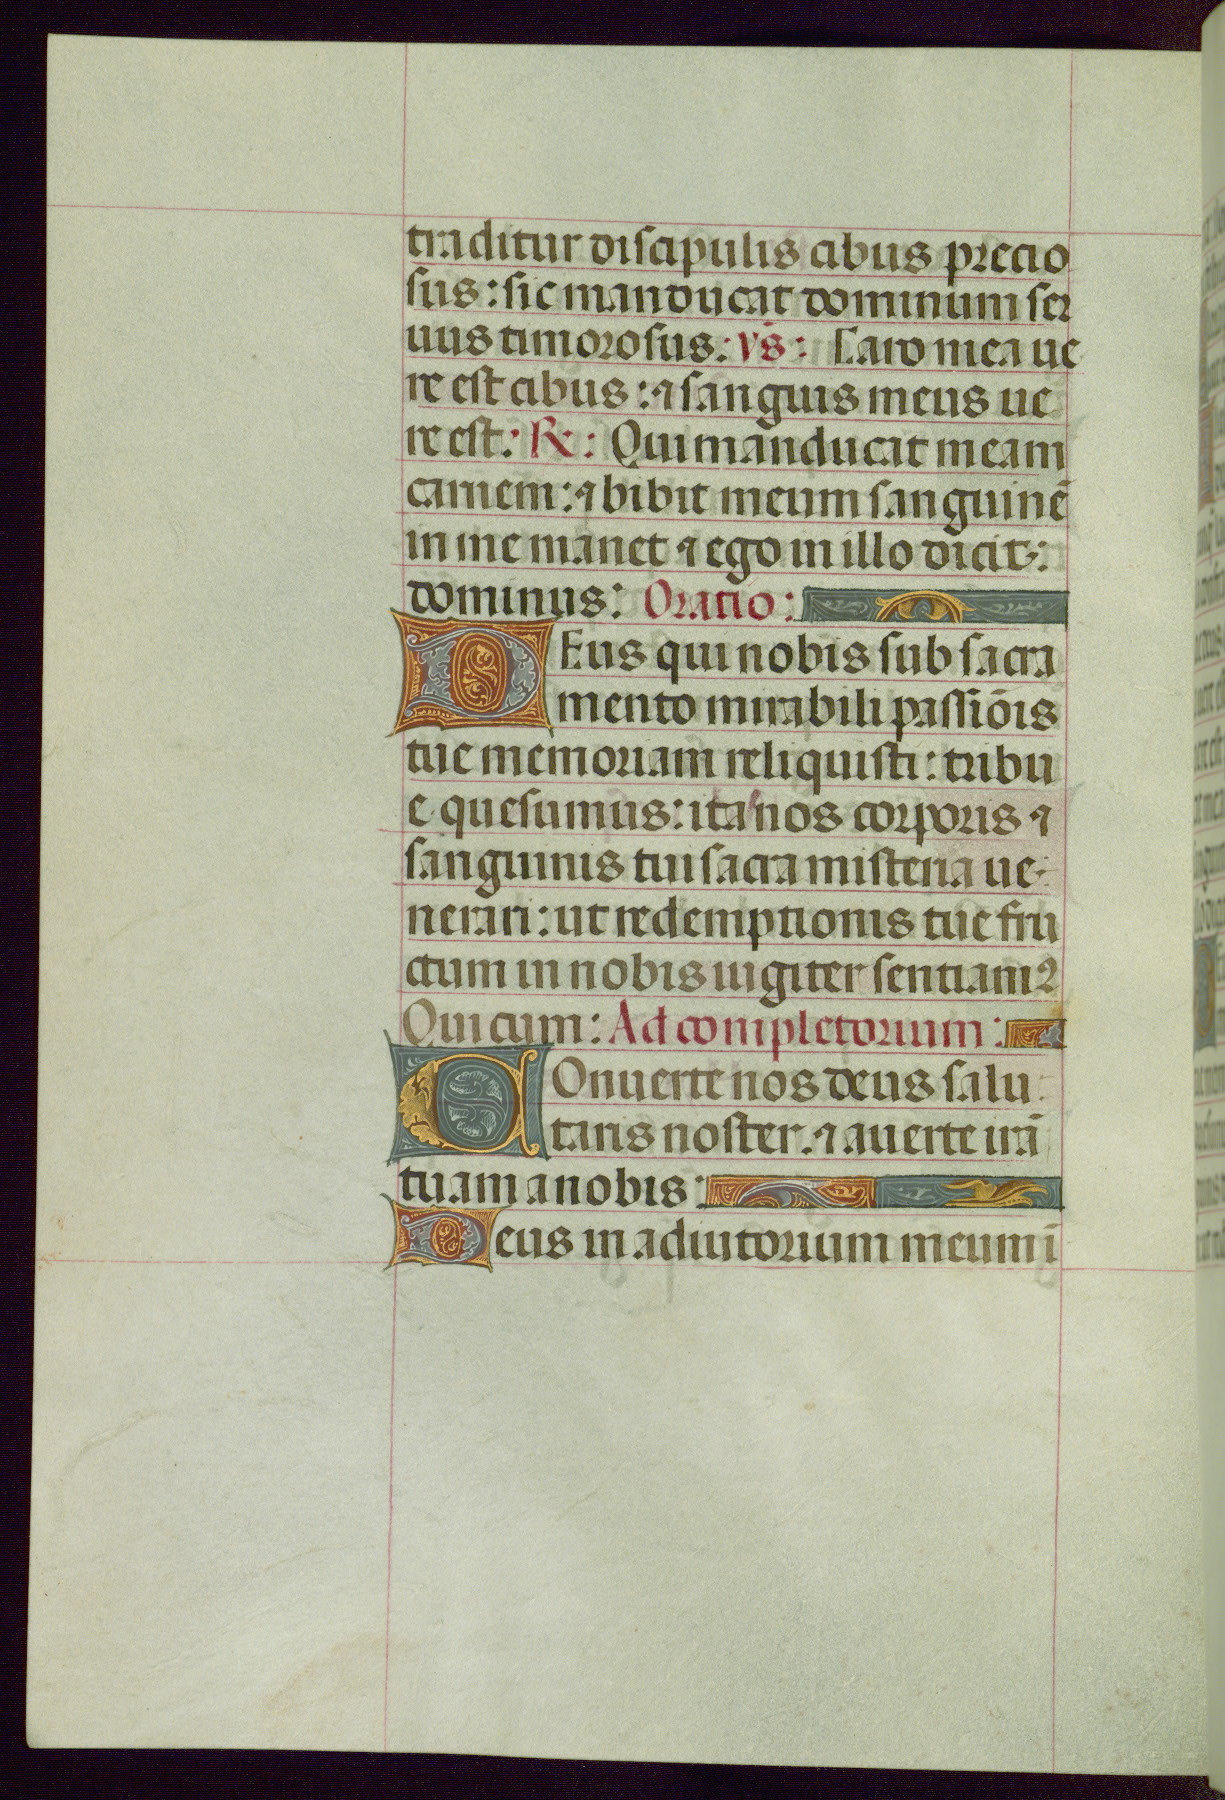 traditur discipulis cibus precio
sus: sic manducat dominum ser
uus timorosus: vs: Caro mea ue
re est cibus: ⁊ sanguis meus ue
re est: R: Qui manducat meam
carnem: ⁊ bibit meum sanguinē
in me manet ⁊ ego in illo dicit:
dominus: Oratio:
DEus qui nobis sub sacra
mento mirabili passiōis
tue memoriam reliquisti: tribu
e quesumus: ita nos corporis ⁊
sanguinis tui sacra misteria ue
nerari: ut redemptionis tue fru
ctum in nobis iugiter sentiamꝰ
Qui cum: Ad completorium:
COnuerte nos deus salu
taris noster. ⁊ auerte irā
tuam a nobis:
Deus in adiutorium meum ī